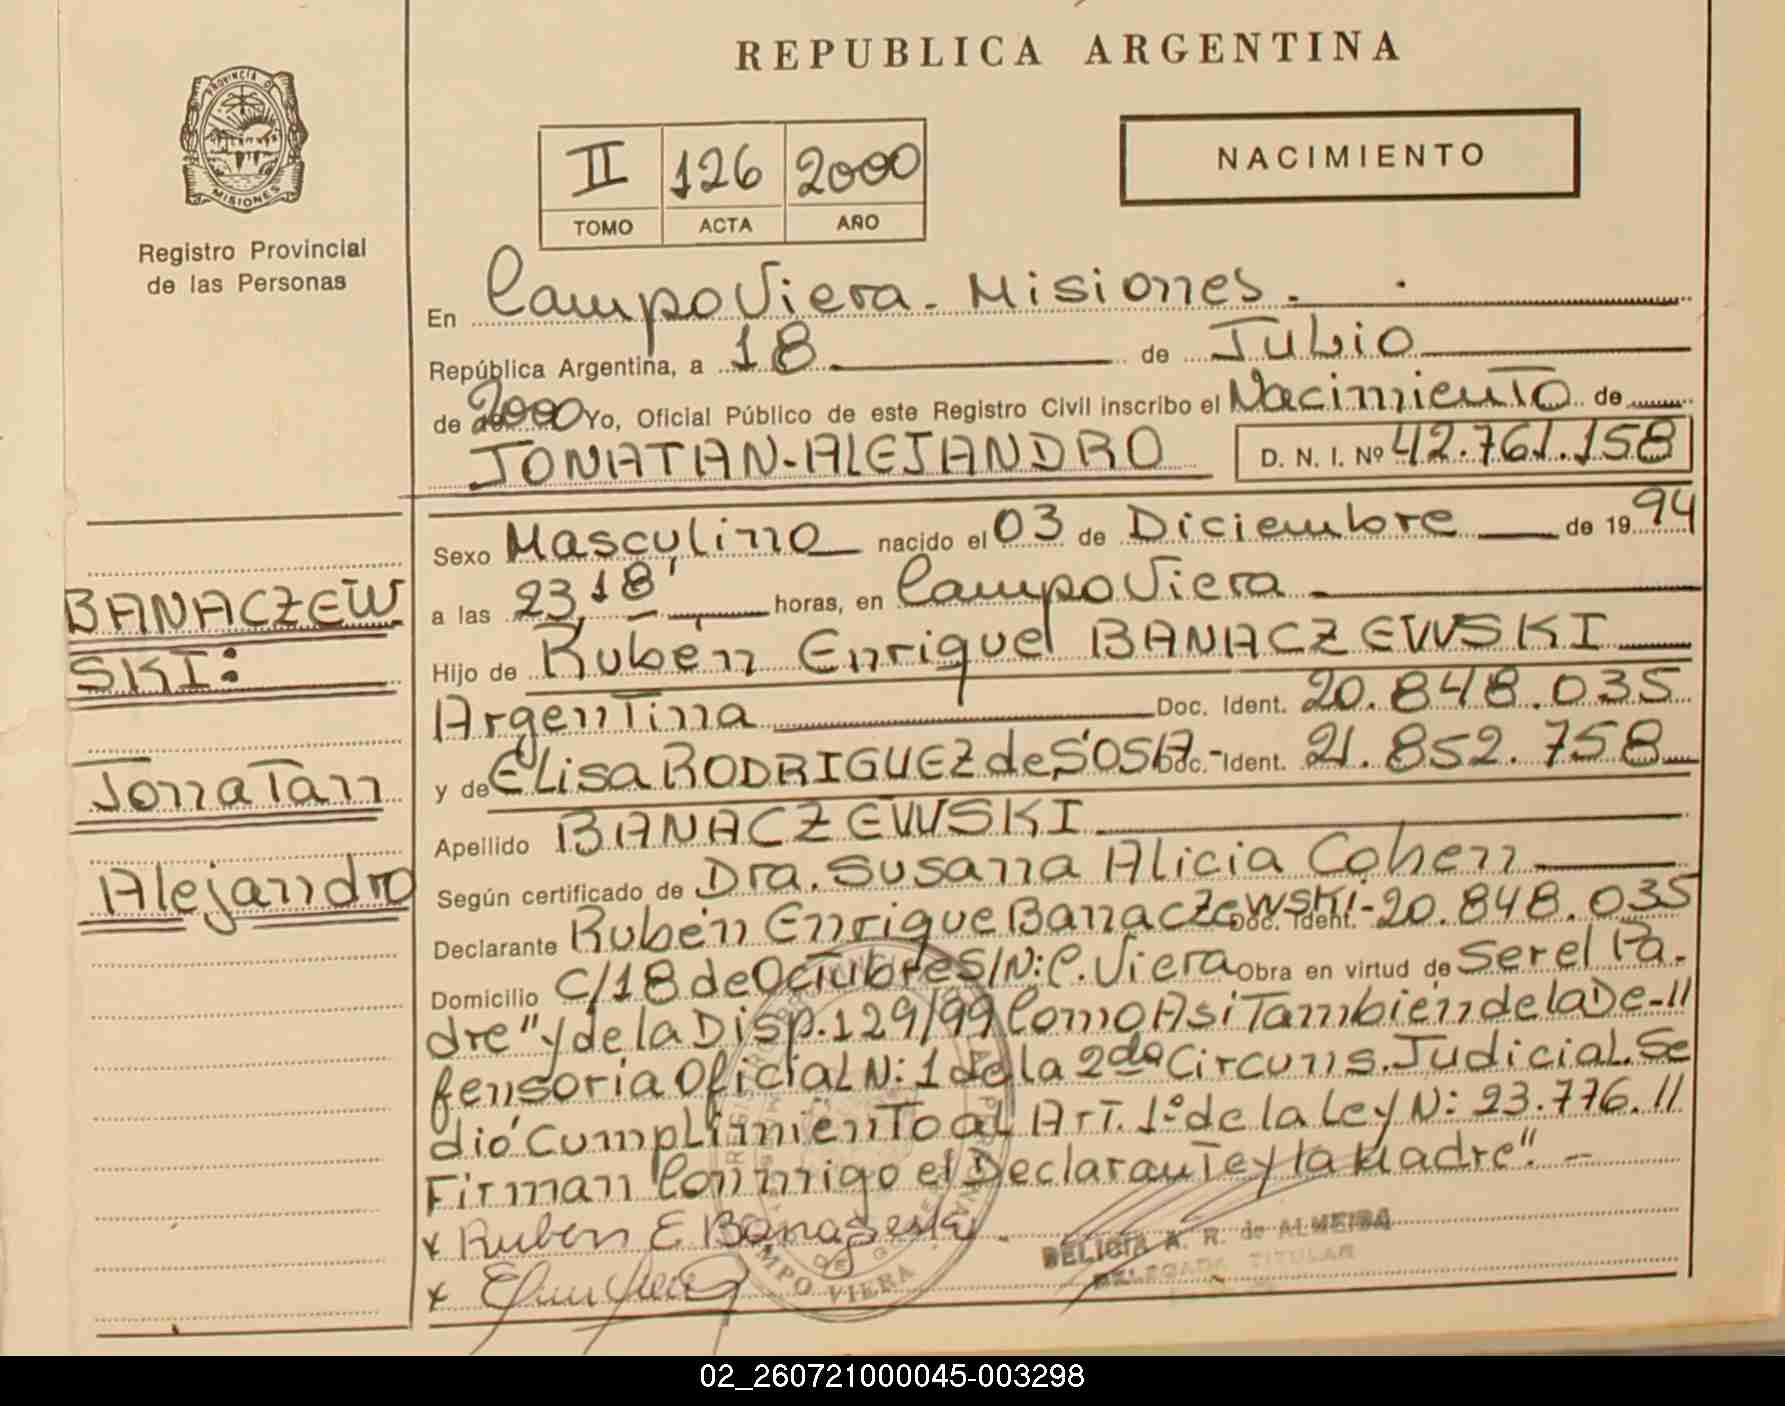 REPUBLICA ARGENTINA
PROVINCIA D
MISIONES
Registro Provincial
de las Personas
II 126 2000
TOMO ACTA AÑO
NACIMIENTO
En Campo Viera - Misiones.
República Argentina, a 18 de Julio
de 2000 Yo, Oficial Público de este Registro Civil inscribo el Nacimiento de
JONATAN-ALEJANDRO D. N. I. Nº 42.761.158
Sexo Masculino nacido el 03 de Diciembre de 1994
a las 23,18' horas, en Campo Viera
Hijo de Rubén Enrique BANACZEWSKI
Argentina Doc. Ident. 20.848.035
y de Elisa RODRIGUEZ de SOSA.- Doc. Ident. 21.852.758
Apellido BANACZEWSKI
Según certificado de Dra. Susana Alicia Cohen
Declarante Rubén Enrique Banaczewski- Doc. Ident. 20.848.035
Domicilio C/18 de Octubre S/N: C. Viera Obra en virtud de Ser el Pa-
dre" y de la Disp. 129/99 Como Asi También de la De-//
fensoria Oficial N: 1 de la 2da Circuns. Judicial. Se
dió Cumplimiento al Art. 1º de la Ley N: 23.776.//
Firman Conmigo el Declarante y la Madre". -
x Ruben E
x
DELICIA A. R. de ALMEIDA
DELEGADA TITULAR
CAMPO VIERA
BANACZEW
SKI:
Jonatan
Alejandro
02_260721000045-003298